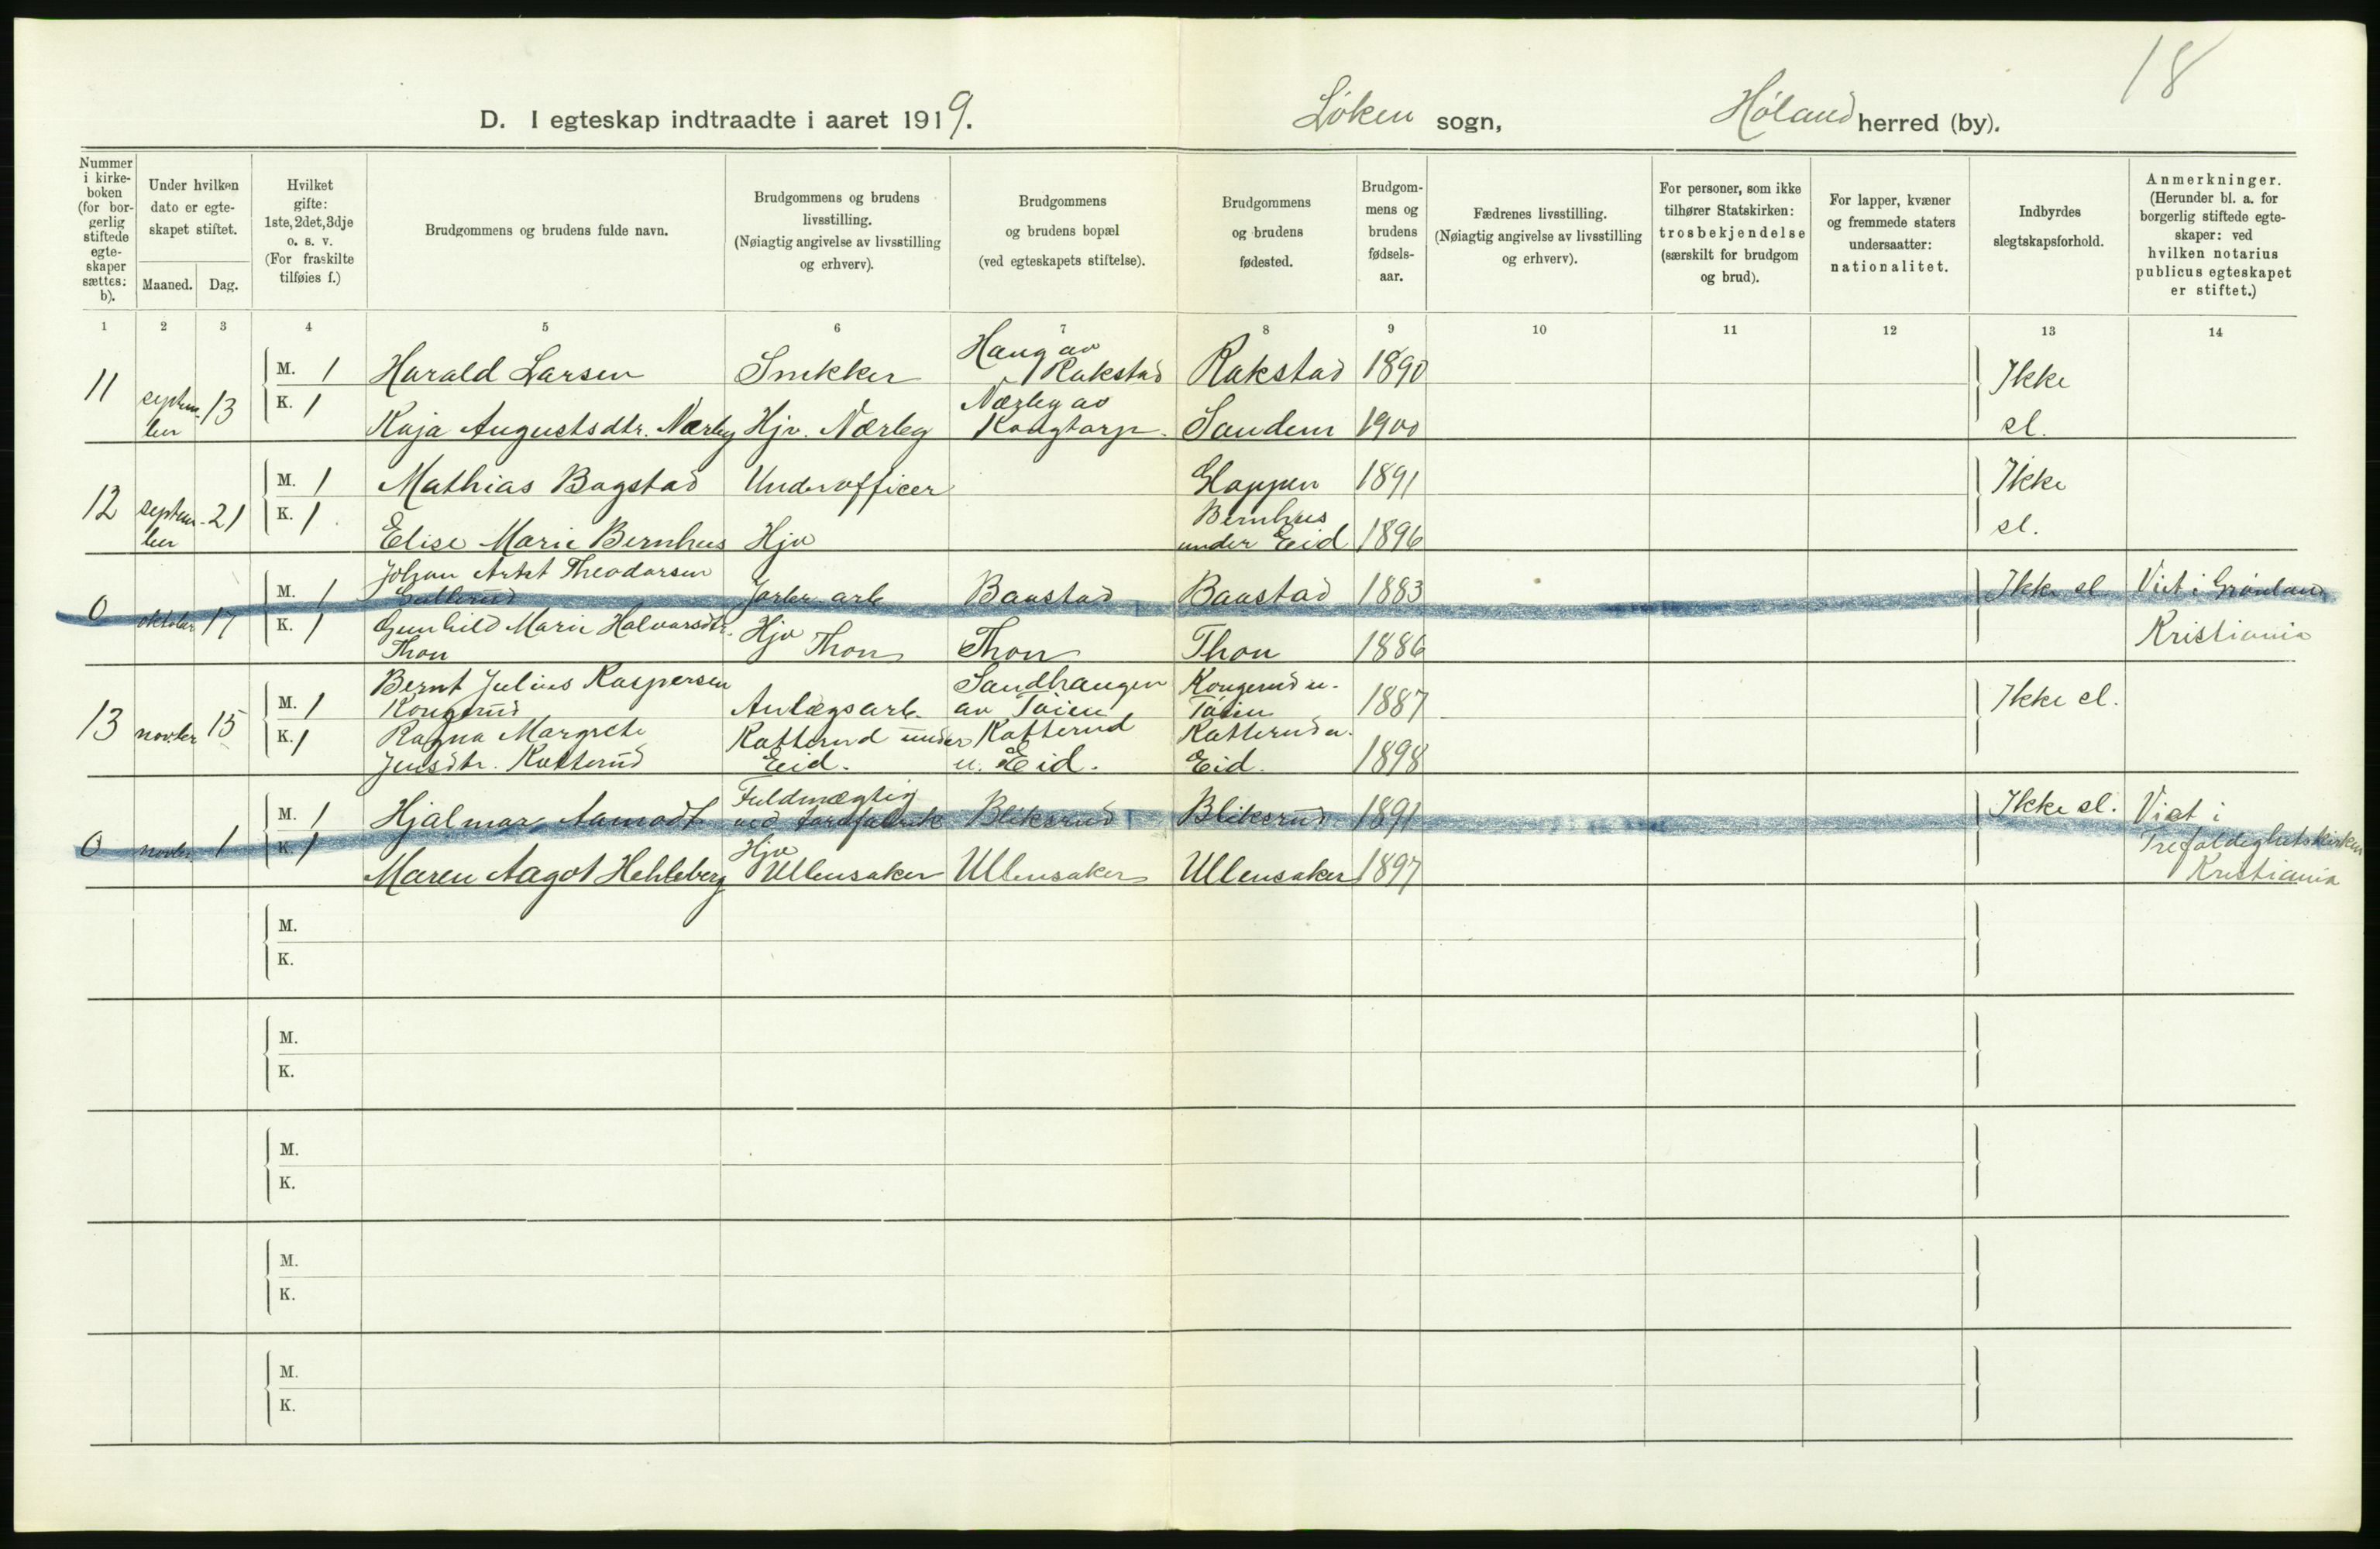 18
D. I egteskap indtraadte i aaret 1919. Løken sogn, Høland herred (by).
Nummer i kirke-boken (for bor-gerlig stiftede egte-skaper sættes: b).
Under hvilken dato er egte-skapet stiftet.
Maaned. Dag.
Hvilket gifte: 1ste, 2det, 3dje o. s. v. (For fraskilte tilføies f.)
Brudgommens og brudens fulde navn.
Brudgommens og brudens livsstilling. (Nøiagtig angivelse av livsstilling og erhverv).
Brudgommens og brudens bopæl (ved egteskapets stiftelse).
Brudgommens og brudens fødested.
Brudgom-mens og brudens fødsels-aar.
Fædrenes livsstilling. (Nøiagtig angivelse av livsstilling og erhverv).
For personer, som ikke tilhører Statskirken: trosbekjendelse (særskilt for brudgom og brud).
For lapper, kvæner og fremmede staters undersaatter: nationalitet.
Indbyrdes slegtskapsforhold.
Anmerkninger. (Herunder bl. a. for borgerlig stiftede egte-skaper: ved hvilken notarius publicus egteskapet er stiftet.)
1 2 3 4 5 6 7 8 9 10 11 12 13 14
11 septem-ber 13
M. 1 Harald Larsen Snekker Haug av Rakstad Rakstad 1890 Ikke
K. 1 Kaja Augustsdtr. Nærby Hjv. Nærby Nærby av Kragtorp Sandem 1900 sl.
12 septem-ber 21
M. 1 Mathias Bogstad Underofficer Gloppen 1891 Ikke
K. 1 Elise Marie Bernhus Hjv Bernhus under Eid 1896 sl.
0 oktober 17
M. 1 Johan Artet Theodorsen Gullerud Jorbr. arb Baastad Baastad 1883 Ikke sl Viet i Grønland
K. 1 Gunhild Marie Halvorsdtr. Thon Hjv Thon Thon Thon 1886 Kristiania
13 novber 15
M. 1 Bernt Julius Kaspersen Kongerud Anlægsarb. Sandhaugen av Tøien Kongerud u. Tøien 1887 Ikke sl.
K. 1 Ragna Margrete Jensdtr. Katterud Katterud under Eid. Katterud u. Eid. Katterud u. Eid. 1898
0 novber 1
M. 1 Hjalmar Aamodt Fuldmægtig ved Bliksrud Bliksrud 1891 Ikke sl. Viet i
K. 1 Maren Aagot Hehleberg Hjv Ullensaker Ullensaker Ullensaker 1897 Trefoldighetskirken Kristiania
M.
K.
M.
K.
M.
K.
M.
K.
M.
K.